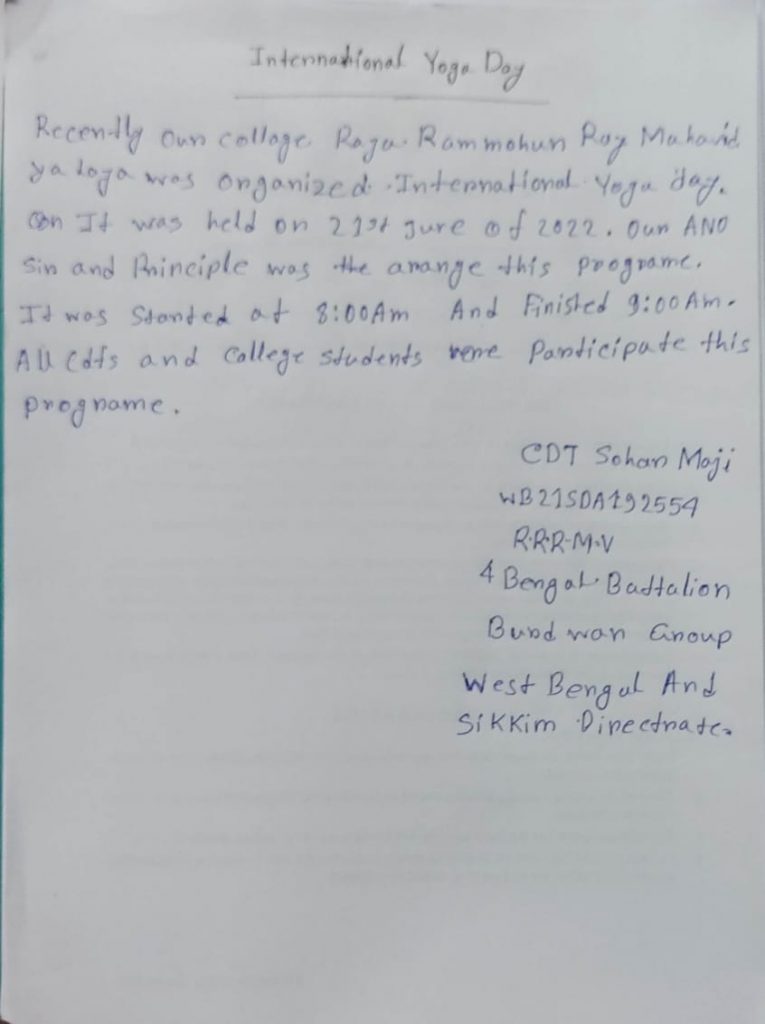 International Yoga Day
Recently Our collage Raja Rammohun Roy Mahavid
yalaya was organized International Yoga day.
On It was held on 21st jure of 2022. Our ANO
Sir and Principle was the arange this programe.
It was Started at 8:00Am And Finished 9:00Am.
All Cdts and College students were Participate this
programe.
CDT Sohan Maji
WB21SDA192554
R.R.R.M.V
4 Bengal Battalion
Burdwan Group
West Bengal And
Sikkim Directrate.